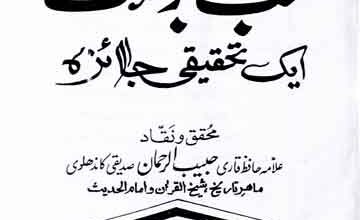 ایک تحقیقی جائزہ
محقق و نقاد
علامہ حافظ قاری حبیب الرحمان صدیقی کاندھلوی
ماہر تاریخ شیخ القرآن و امام الحدیث